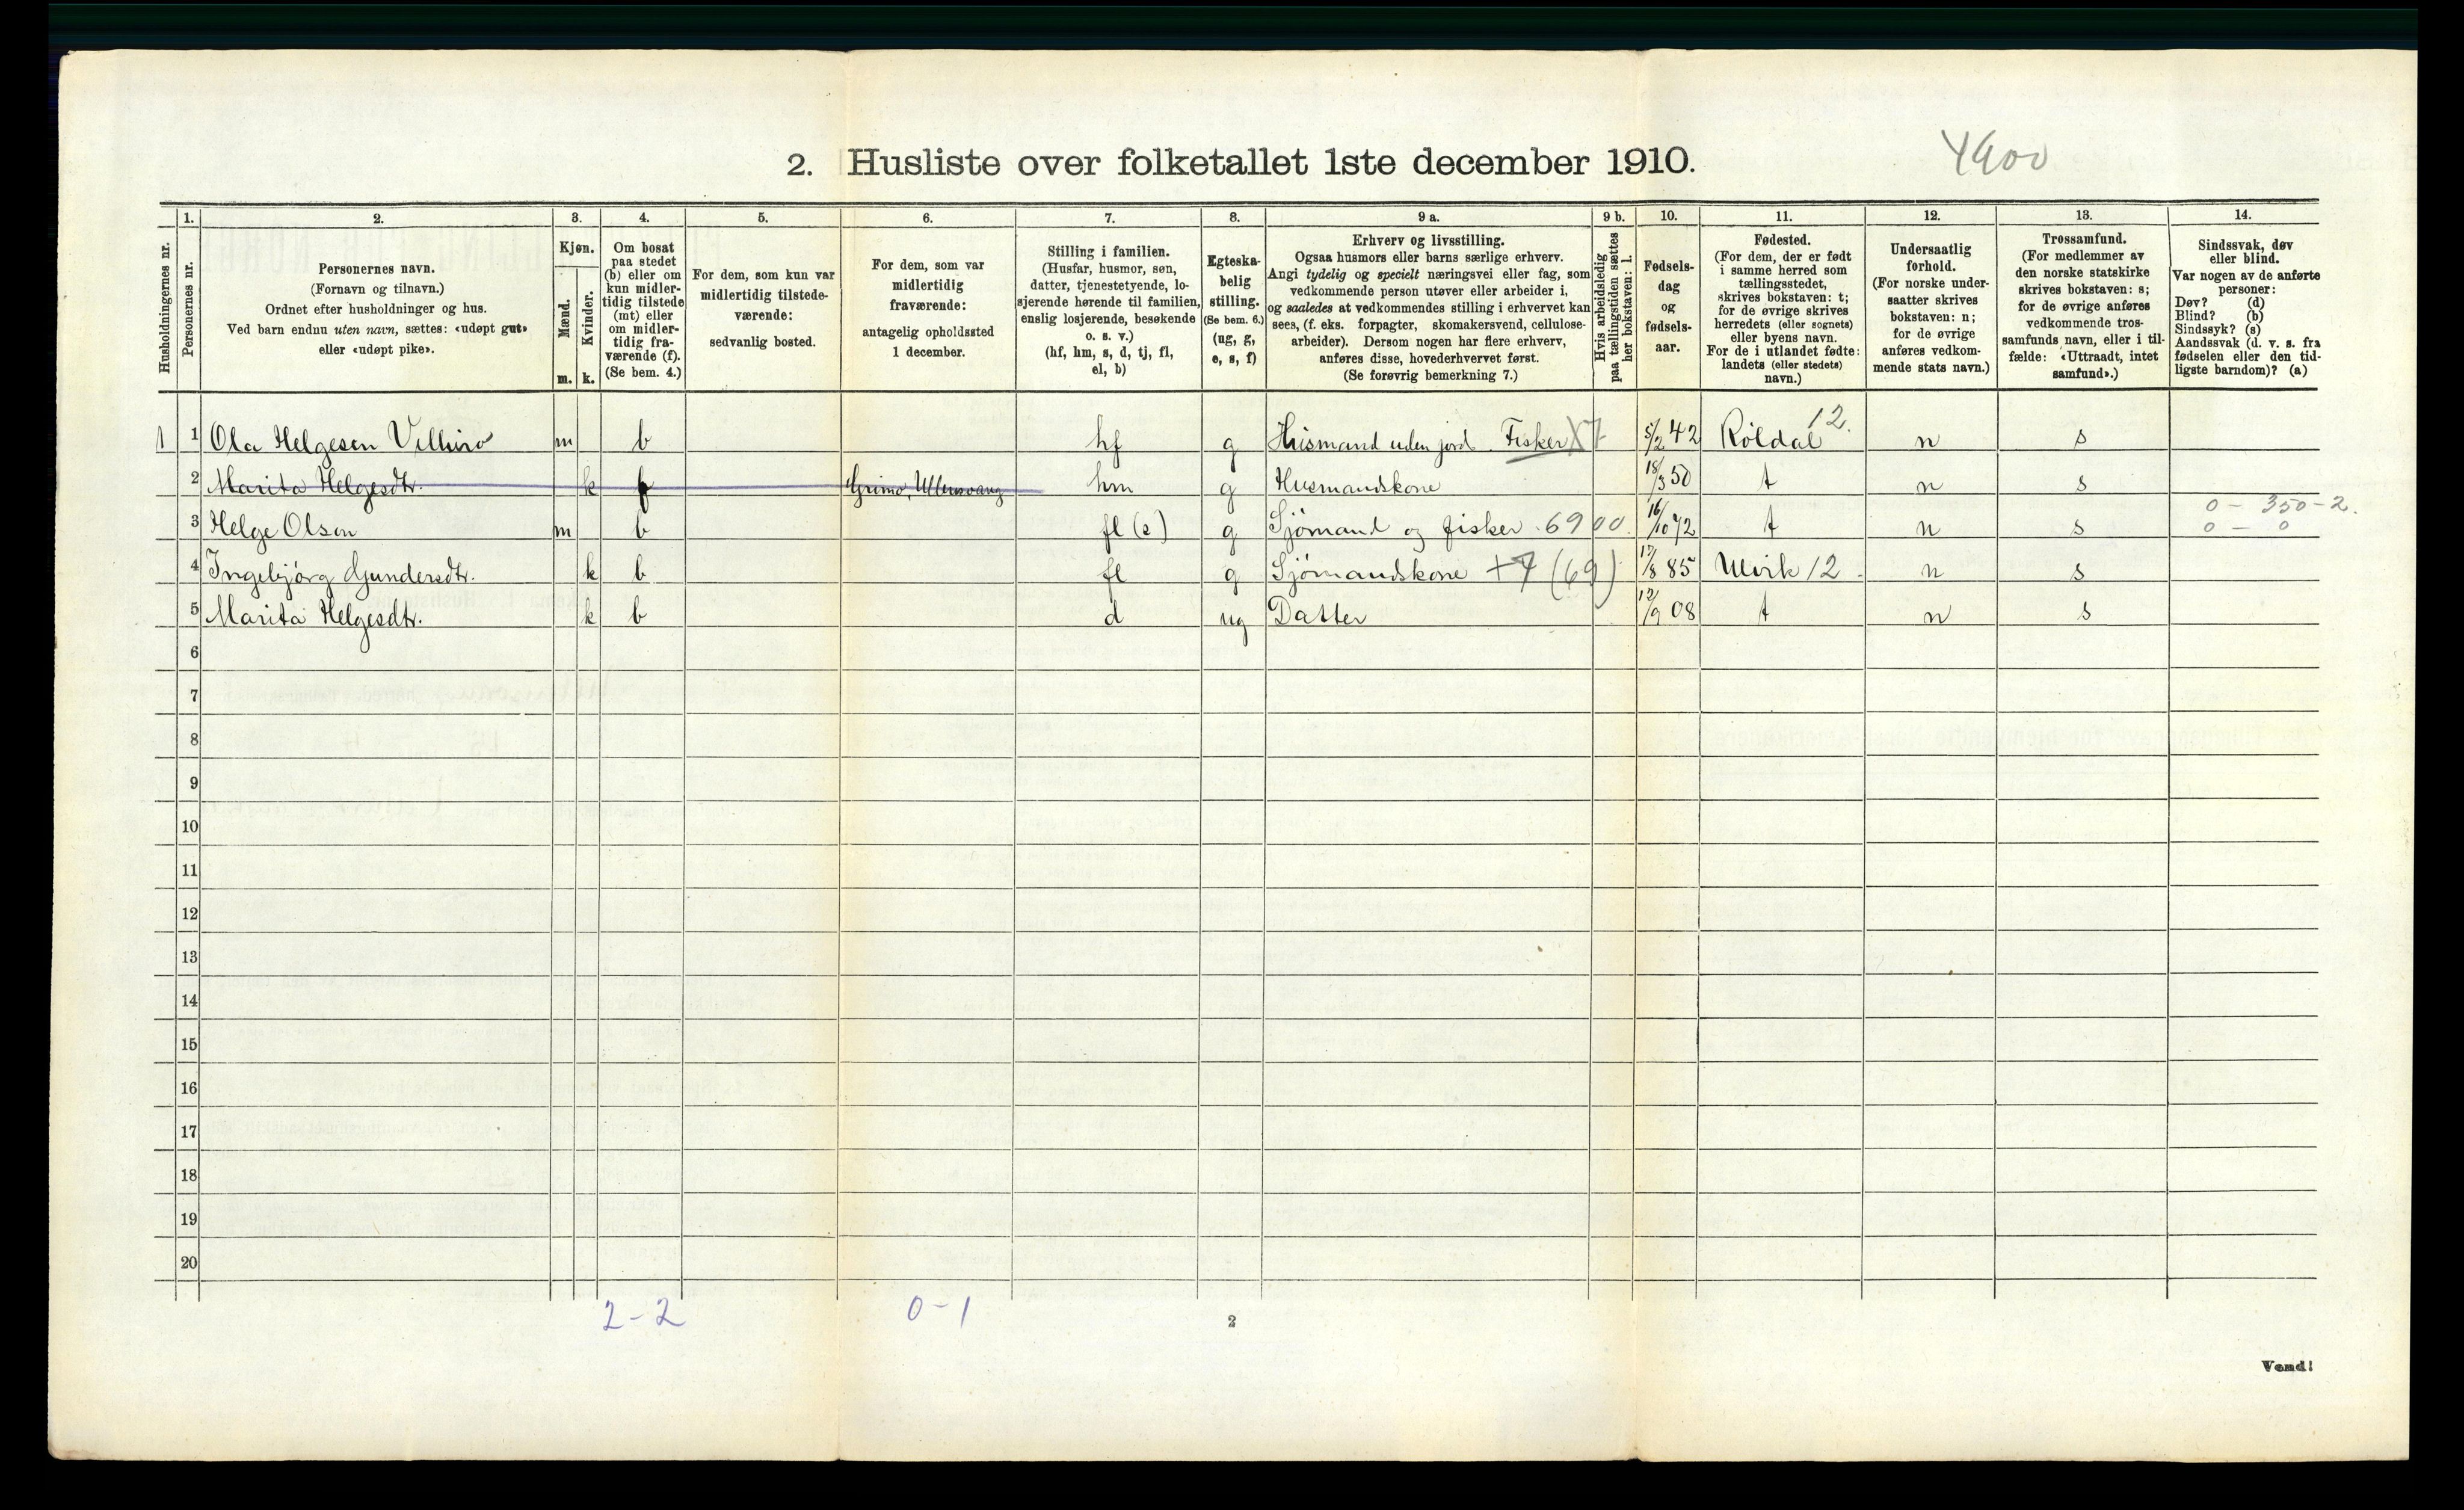 2. Husliste over folketallet 1ste december 1910.
4900
Husholdningernes nr.
1.
Personernes nr.
2.
Personernes navn.
(Fornavn og tilnavn.)
Ordnet efter husholdninger og hus.
Ved barn endnu uten navn, sættes: «udøpt gut»
eller «udøpt pike».
3.
Kjøn.
Mænd.
Kvinder.
m. k.
4.
Om bosat
paa stedet
(b) eller om
kun midler-
tidig tilstede
(mt) eller
om midler-
tidig fra-
værende (f).
(Se bem. 4.)
5.
For dem, som kun var
midlertidig tilstede-
værende:
sedvanlig bosted.
6.
For dem, som var
midlertidig
fraværende:
antagelig opholdssted
1 december.
7.
Stilling i familien.
(Husfar, husmor, søn,
datter, tjenestetyende, lo-
sjerende hørende til familien,
enslig losjerende, besøkende
o. s. v.)
(hf, hm, s, d, tj, fl,
el, b)
8.
Egteska-
belig
stilling.
(Se bem. 6.)
(ug, g,
e, s, f)
9 a.
Erhverv og livsstilling.
Ogsaa husmors eller barns særlige erhverv.
Angi tydelig og specielt næringsvei eller fag, som
vedkommende person utøver eller arbeider i,
og saaledes at vedkommendes stilling i erhvervet kan
sees, (f. eks. forpagter, skomakersvend, cellulose-
arbeider). Dersom nogen har flere erhverv,
anføres disse, hovederhvervet først.
(Se forøvrig bemerkning 7.)
9 b.
Hvis arbeidsledig
paa tællingstiden sættes
her bokstaven: l.
10.
Fødsels-
dag
og
fødsels-
aar.
11.
Fødested.
(For dem, der er født
i samme herred som
tællingsstedet,
skrives bokstaven: t;
for de øvrige skrives
herredets (eller sognets)
eller byens navn.
For de i utlandet fødte:
landets (eller stedets)
navn.)
12.
Undersaatlig
forhold.
(For norske under-
saatter skrives
bokstaven: n;
for de øvrige
anføres vedkom-
mende stats navn.)
13.
Trossamfund.
(For medlemmer av
den norske statskirke
skrives bokstaven: s;
for de øvrige anføres
vedkommende tros-
samfunds navn, eller i til-
fælde: «Uttraadt, intet
samfund».)
14.
Sindssvak, døv
eller blind.
Var nogen av de anførte
personer:
Døv? (d)
Blind? (b)
Sindssyk? (s)
Aandssvak (d. v. s. fra
fødselen eller den tid-
ligste barndom)? (a)
1 1 Ola Helgesen m b hf g Husmand uden jord. Fisker X7 5/2 42 Röldal 12. n s
2 Marita Helgesdtr. k f Grimo, Ullensvang hm g Husmandskone 18/3 50 t n s
0 - 350 - 2.
3 Helge Olsen m b fl (s) g Sjömand og fisker. 6900. 16/10 72 t n s 0 - 0
4 Ingebjörg Gundersdtr. k b fl g Sjömandskone +7 (69) 17/8 85 Ulvik 12 n s
5 Marita Helgesdtr. k b d ug Datter 12/9 08 t n s
6
7
8
9
10
11
12
13
14
15
16
17
18
19
20
2 - 2 0 - 1
2
Vend!